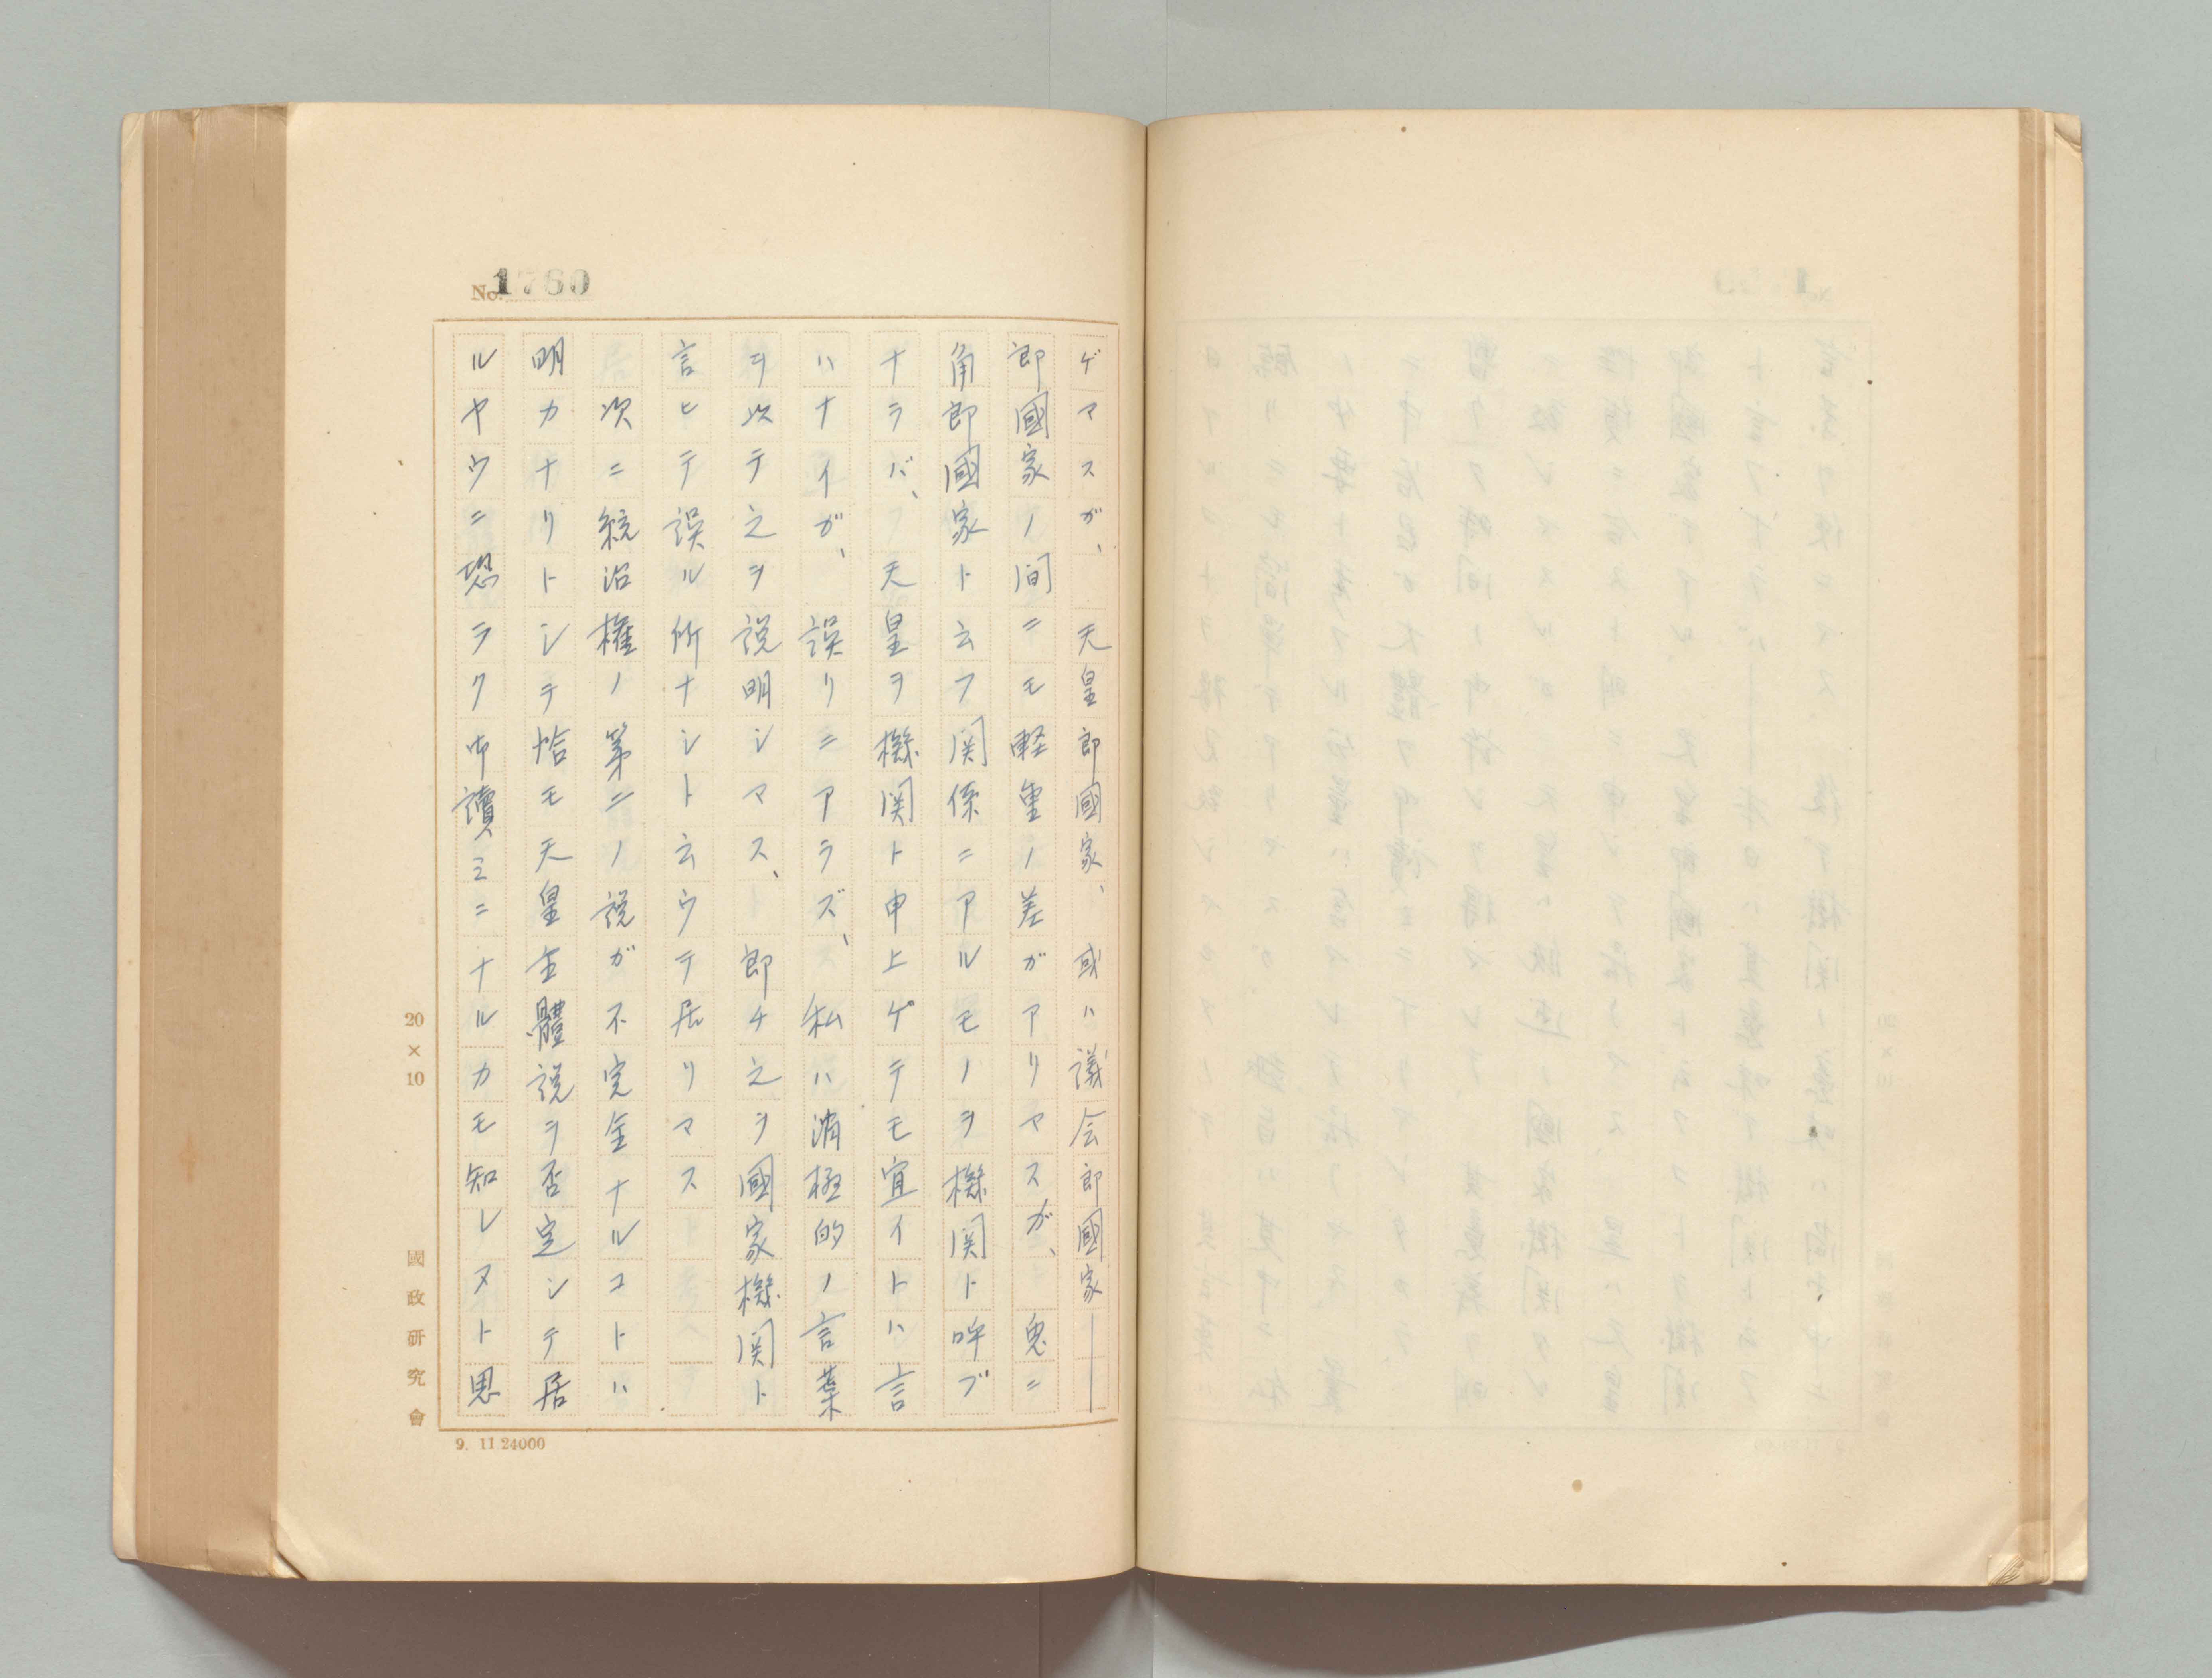 No. 1760
ゲマスガ、天皇即國家、或ハ議会即國家――
即國家ノ間ニモ軽重ノ差ガアリマスガ、兎ニ
角即國家ト云フ関係ニアルモノヲ機関ト呼ブ
ナラバ、天皇ヲ機関ト申上ゲテモ宜イトハ言
ハナイガ、誤リニアラズ、私ハ消極的ノ言葉
ヲ以テ之ヲ説明シマス、即チ之ヲ國家機関ト
言ヒテ誤ル所ナシト云ウテ居リマス
次ニ統治権ノ第二ノ説ガ不完全ナルコトハ
明カナリトシテ恰モ天皇全體説ヲ否定シテ居
ルヤウニ恐ラク御讀ミニナルカモ知レヌト思
20×10
國政研究會
9. 11 24000